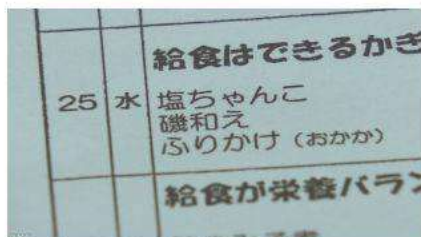 給食はできるかぎ
25 水 塩ちゃんこ
磯和え
ふりかけ（おかか）
給食が栄養バラン